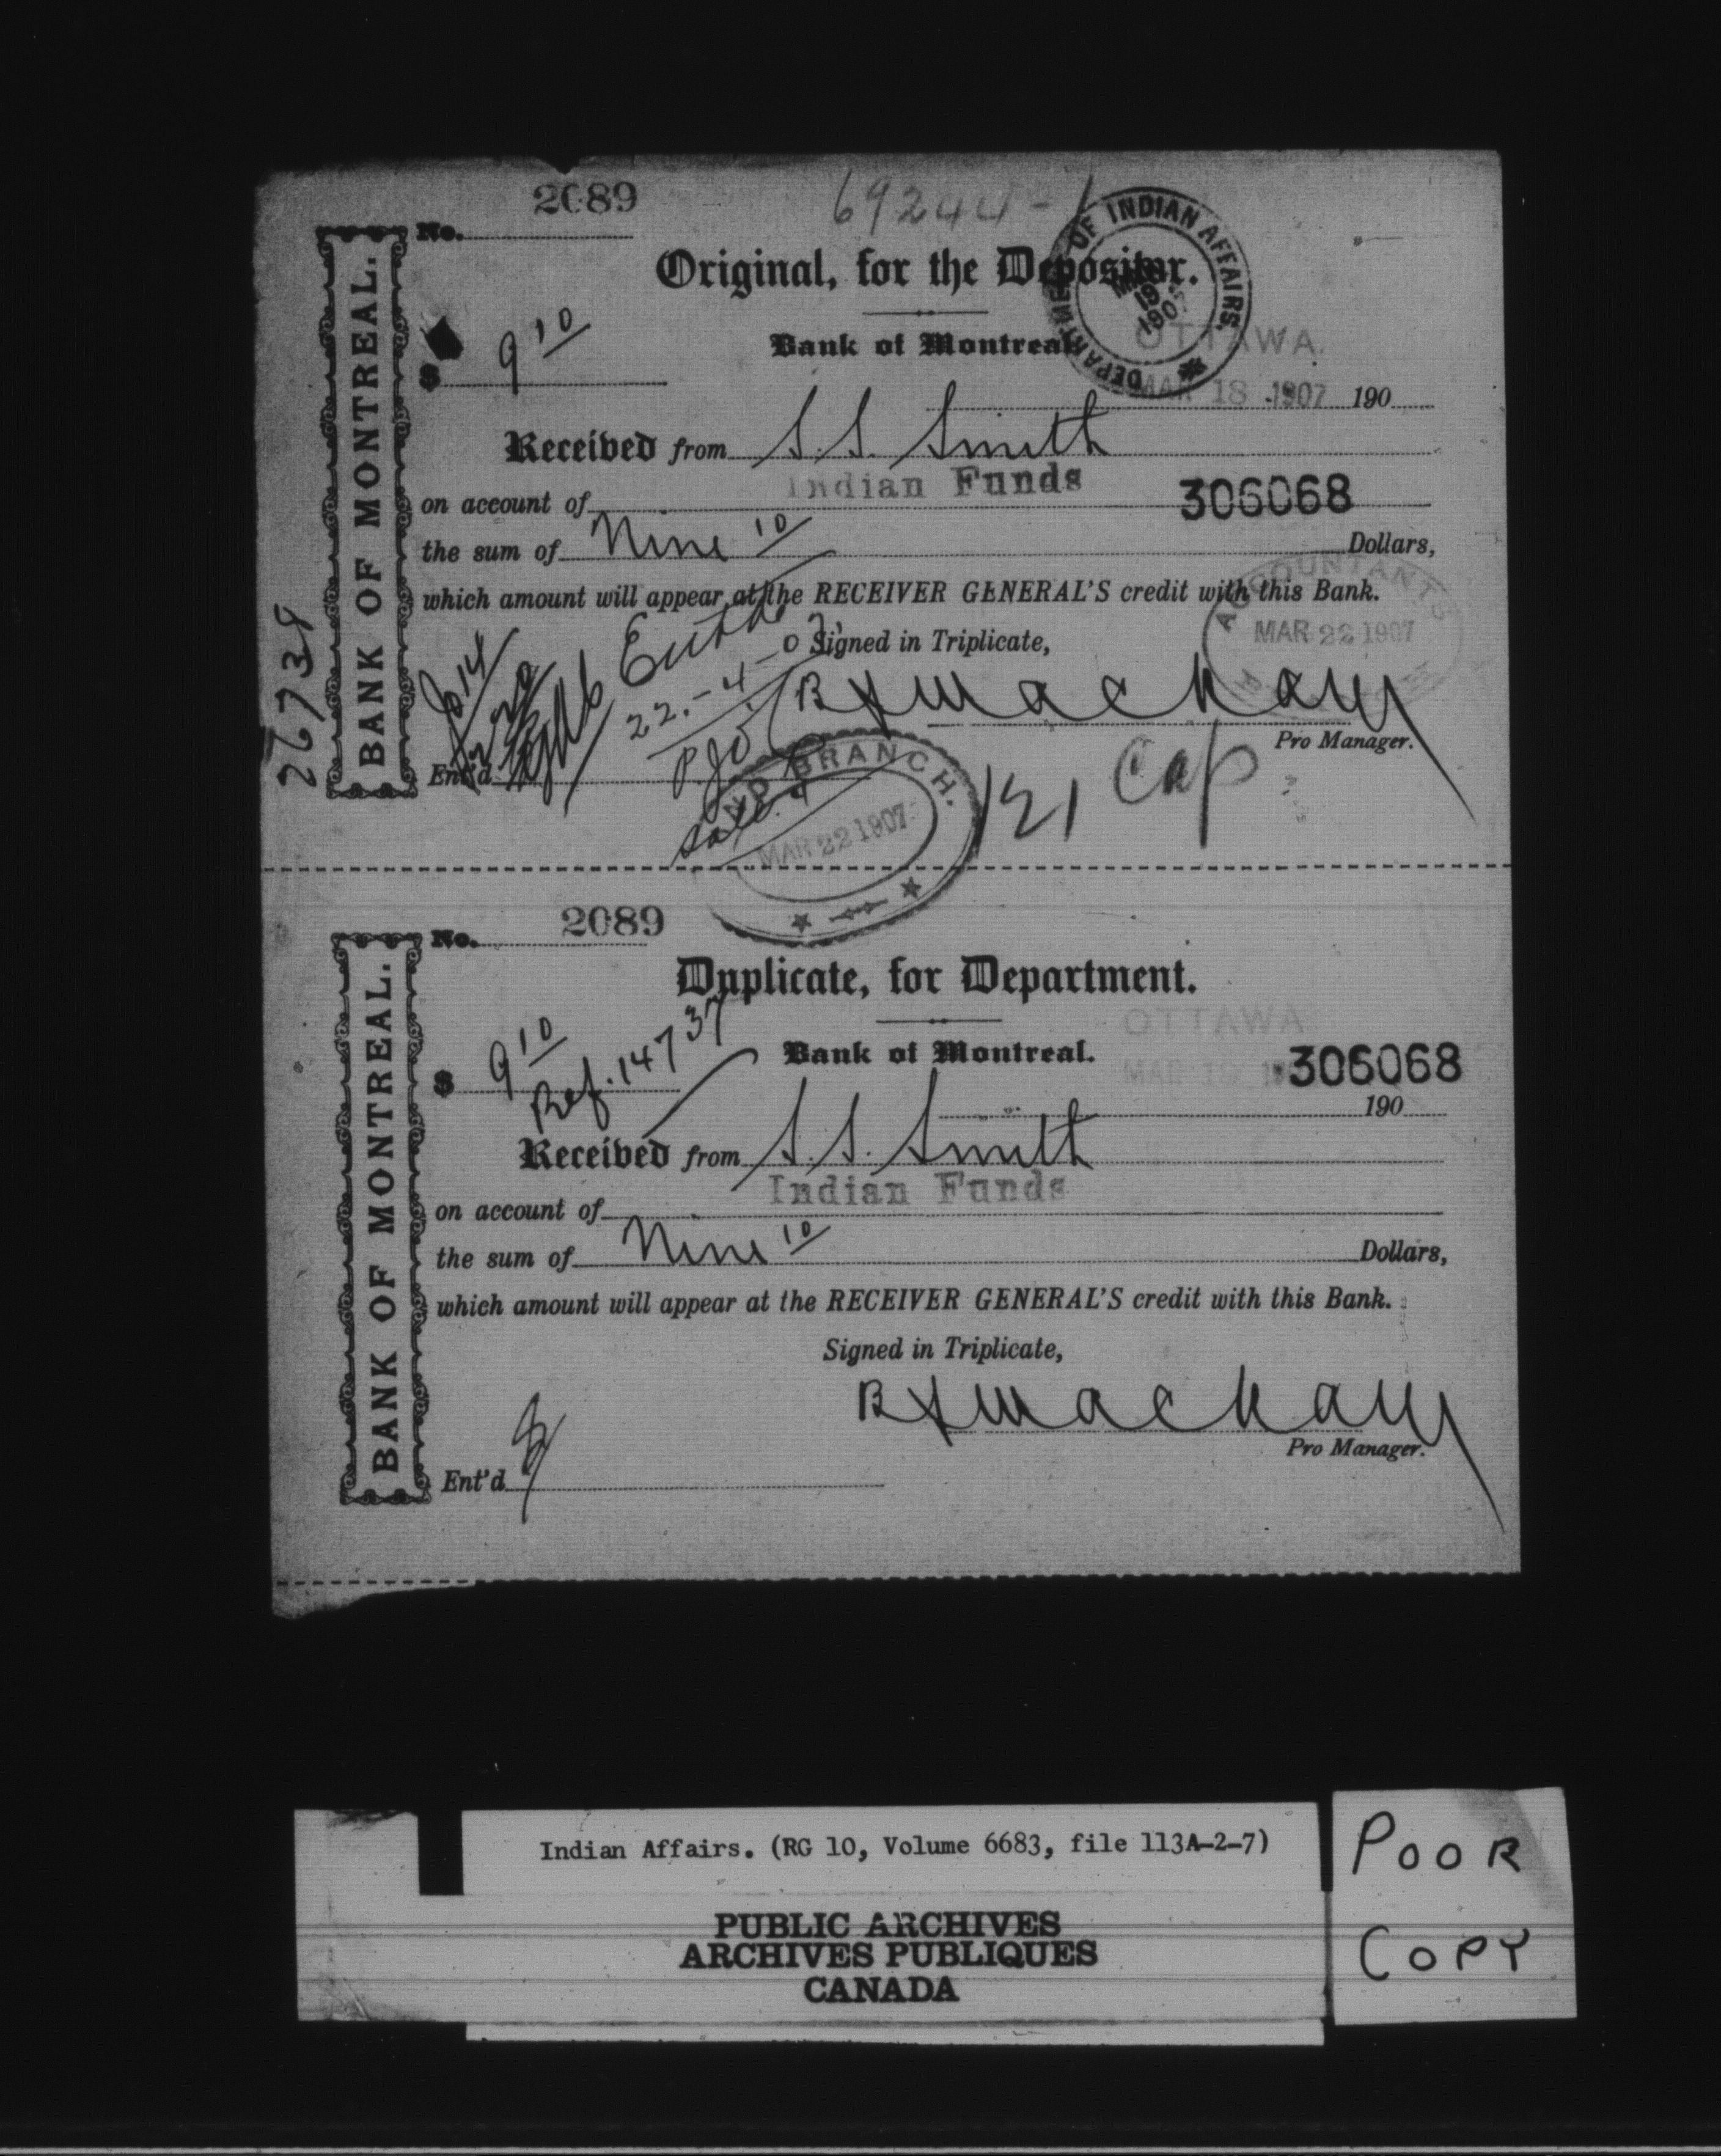 2089
69244-1
No.
DEPARTMENT OF INDIAN AFFAIRS.
Original, for the Depositor.
$ 9 10
Bank of Montreal
OTTAWA
MAR 18 1907 190
Received from S. S. Smith
Indian Funds
306068
on account of
the sum of Nine 10 Dollars,
which amount will appear at the RECEIVER GENERAL'S credit with this Bank.
ACCOUNTANT'S
MAR 22 1907
Signed in Triplicate,
22.-4-0
Pro Manager.
Ent'd
26738
BANK OF MONTREAL.
BRANCH.
MAR 22 1907
Sale
121 Cap
No. 2089
Duplicate, for Department.
OTTAWA
$ 9 10
Ref. 14737
Bank of Montreal.
MAR 306068
190
Received from S. S. Smith
Indian Funds
on account of
the sum of Nine 10 Dollars,
which amount will appear at the RECEIVER GENERAL'S credit with this Bank.
Signed in Triplicate,
Pro Manager.
Ent'd
BANK OF MONTREAL.
Indian Affairs. (RG 10, Volume 6683, file 113A-2-7)
PUBLIC ARCHIVES
ARCHIVES PUBLIQUES
CANADA
POOR
COPY